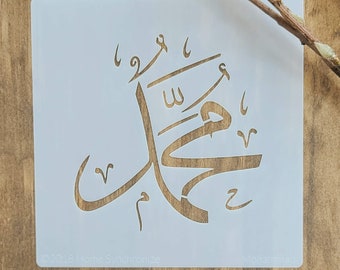 محمد
©2018 Home Synchronize